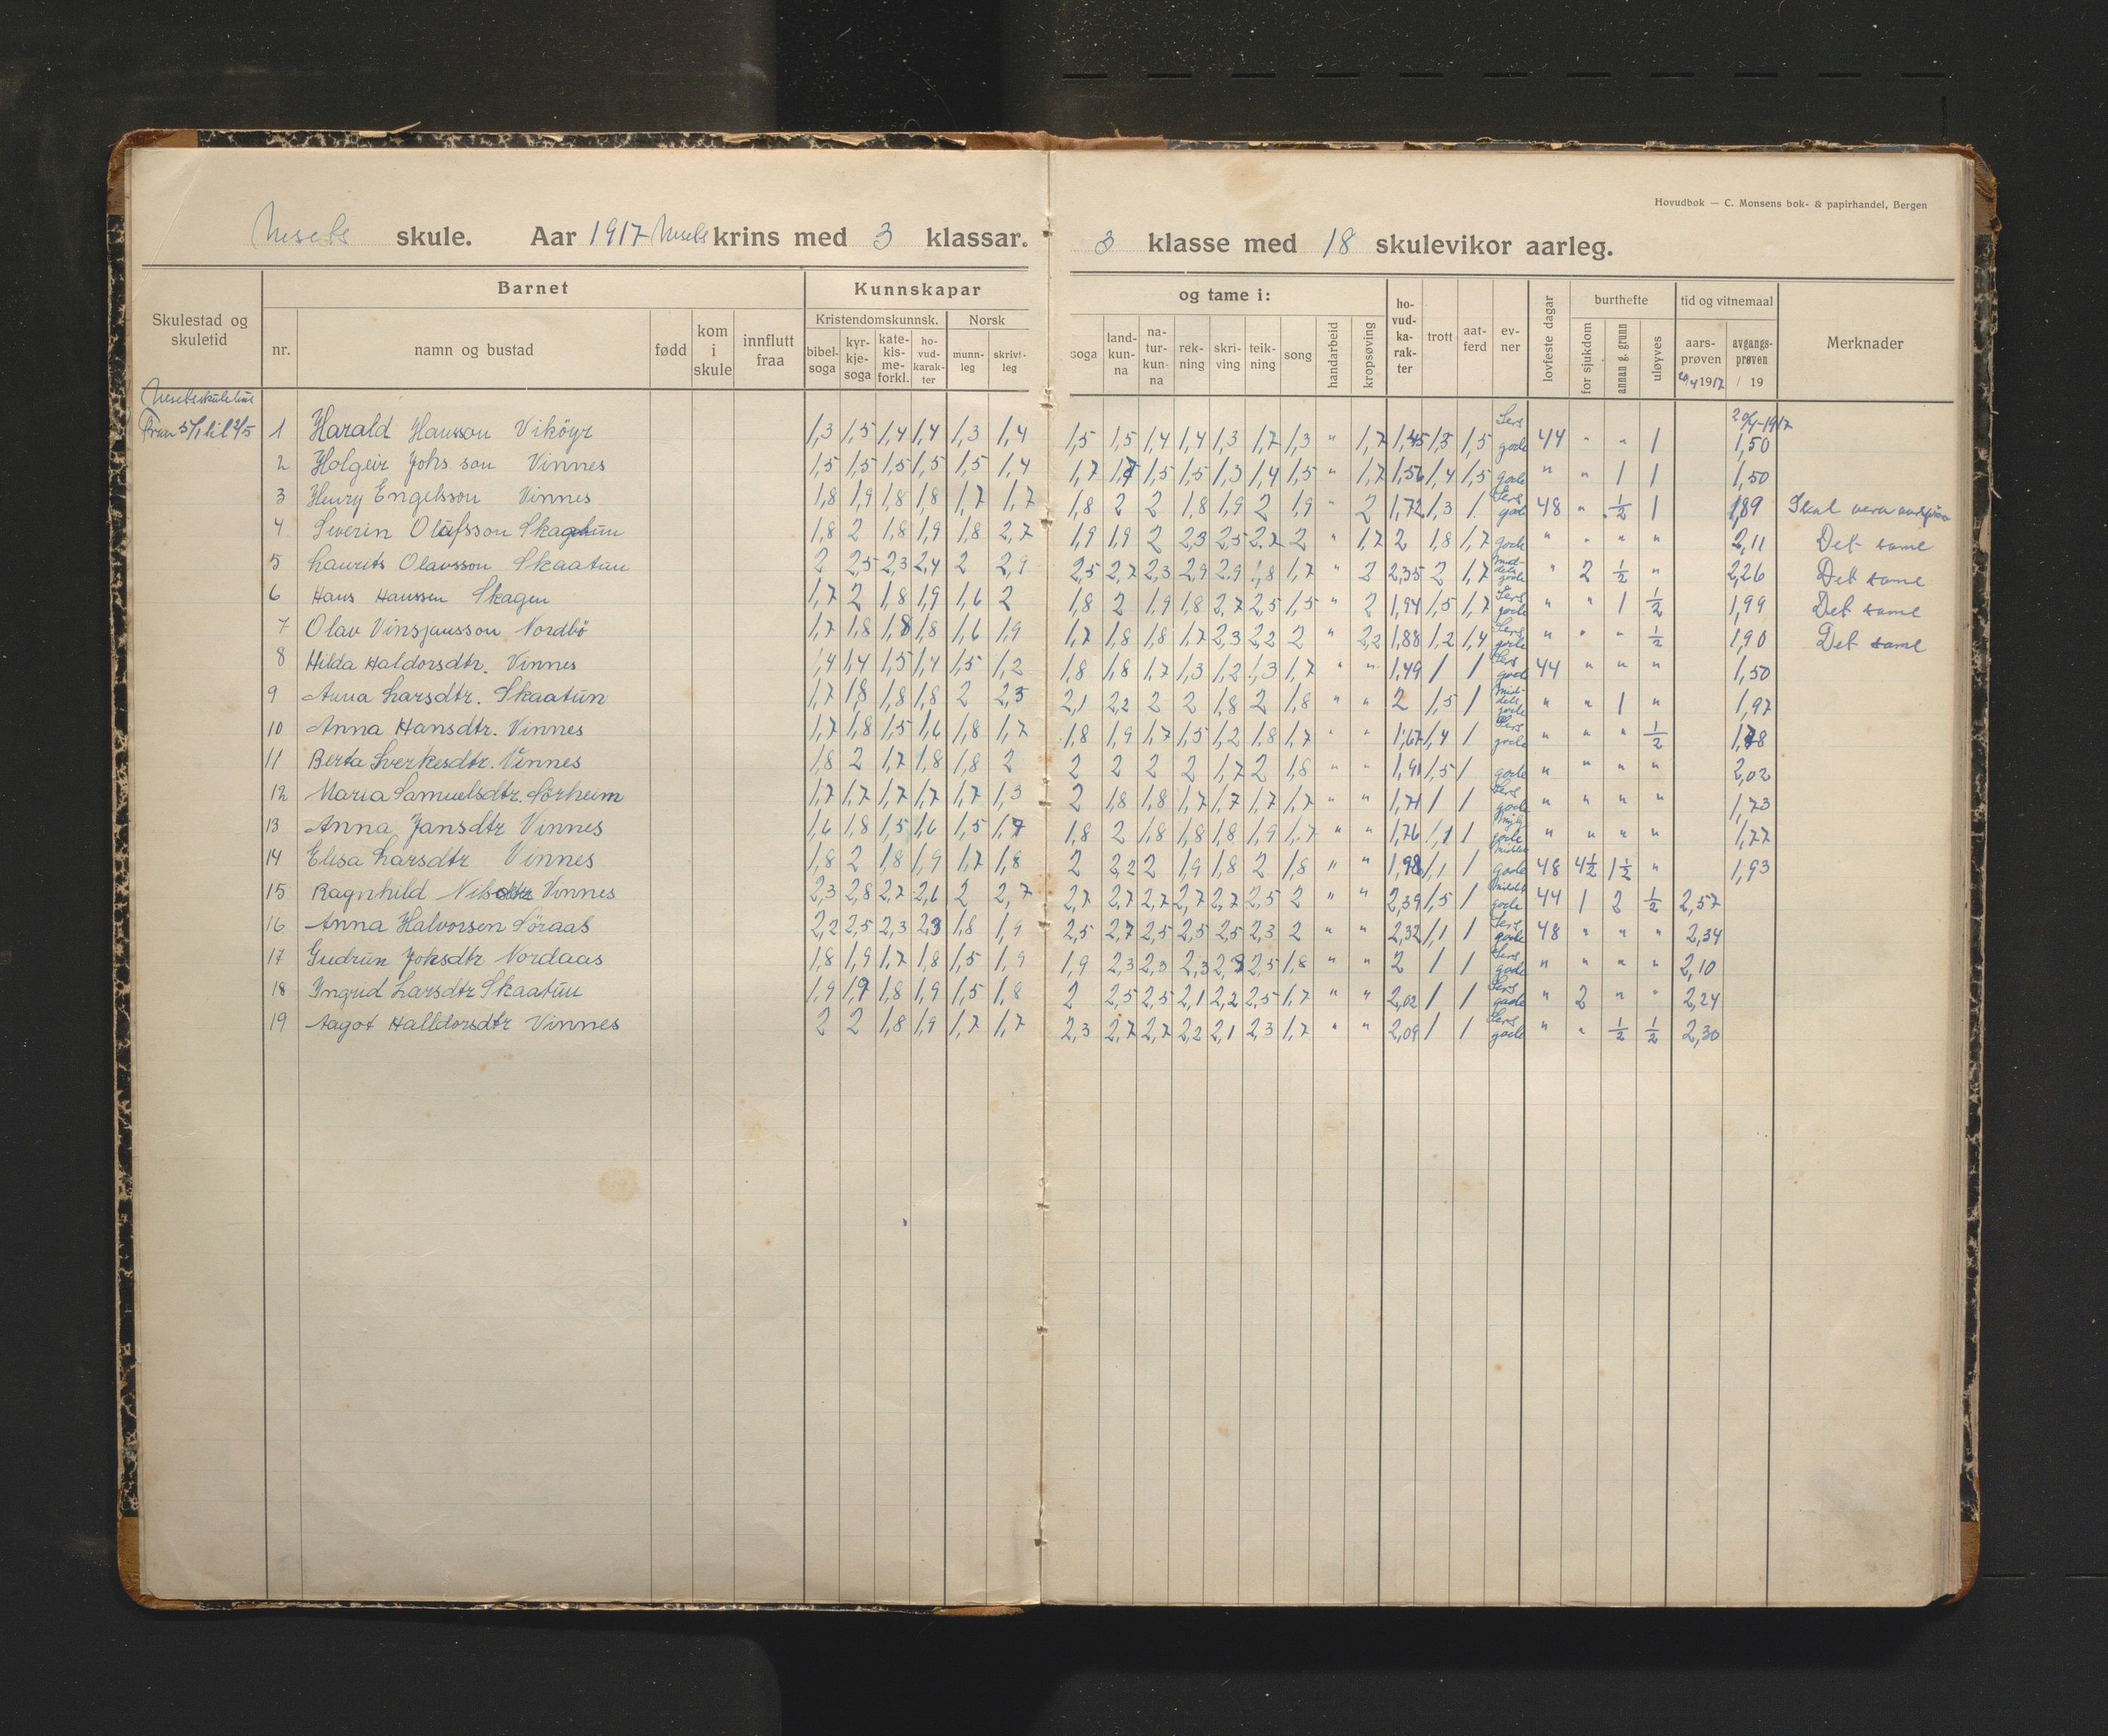 Hovudbok — C. Monsens bok- & papirhandel, Bergen
skule. Aar 1917 krins med 3 klassar. 3 klasse med 18 skulevikor aarleg.
Skulestad og skuletid
Barnet
nr. namn og bustad fødd kom i skule innflutt fraa
Kunnskapar og tame i:
Kristendomskunnsk. Norsk
bibel-soga kyr-kje-soga kate-kis-me-forkl. ho-vud-karak-ter munn-leg skrivt-leg
soga land-kun-na na-tur-kun-na rek-ning skri-ving teik-ning song handarbeid kropsøving
ho-vud-ka-rak-ter trott aat-ferd ev-ner lovfeste dagar
burthefte
for sjukdom annan g. grunn uløyves
tid og vitnemaal
aars-prøven 1917 avgangs-prøven / 19
Merknader
20/4-1917
1 Harald Hansson Viköyr 1,3 1,5 1,4 1,4 1,3 1,4 1,5 1,5 1,4 1,4 1,3 1,7 1,3 " 1,7 1,45 1,3 1,5 Sers gode 44 " " 1 1,50
2 Holgeir Johs son Vinnes 1,5 1,5 1,5 1,5 1,5 1,4 1,7 1,7 1,5 1,5 1,3 1,4 1,5 " 1,7 1,56 1,4 1,5 gode " " 1 1 1,50
3 Henry Engelsson Vinnes 1,8 1,9 1,8 1,8 1,7 1,7 1,8 2 2 1,8 1,9 2 1,9 " 2 1,72 1,3 1 Sers gode 48 " 1/2 1 1,89 Skal vera
4 Severin Olafsson 1,8 2 1,8 1,9 1,8 2,7 1,9 1,9 2 2,3 2,5 2,7 2 " 1,7 2 1,8 1,7 gode " " " " 2,11 Det same
5 Laurits Olavsson Skaatun 2 2,5 2,3 2,4 2 2,9 2,5 2,7 2,3 2,9 2,9 1,8 1,7 " 2 2,35 2 1,7 Middels gode " 2 1/2 " 2,26 Det same
6 Hans Hanssen Skagen 1,7 2 1,8 1,9 1,6 2 1,8 2 1,9 1,8 2,7 2,5 1,5 " 2 1,94 1,5 1,7 Sers gode " " 1 1/2 1,99 Det same
7 Olav Vinsjansson Nordbö 1,7 1,8 1,8 1,8 1,6 1,9 1,7 1,8 1,8 1,7 2,3 2,2 2 " 2,2 1,88 1,2 1,4 Sers gode " " " 1/2 1,90 Det same
8 Hilda Haldorsdtr. Vinnes 1,4 1,4 1,5 1,4 1,5 1,2 1,8 1,8 1,7 1,3 1,2 1,3 1,7 " " 1,49 1 1 Sers gode 44 " " " 1,50
9 Anna Larsdtr. Skaatun 1,7 1,8 1,8 1,8 2 2,3 2,1 2,2 2 2 1,8 2 1,8 " " 2 1,5 1 Middels gode " " 1 " 1,97
10 Anna Hansdtr. Vinnes 1,7 1,8 1,5 1,6 1,8 1,7 1,8 1,9 1,7 1,5 1,2 1,8 1,7 " " 1,67 1,4 1 Sers gode " " " 1/2 1,78
11 Berta Sverkesdtr. Vinnes 1,8 2 1,7 1,8 1,8 2 2 2 2 2 1,7 2 1,8 " " 1,91 1,5 1 gode " " " " 2,02
12 Maria Samuelsdtr. Sörheim 1,7 1,7 1,7 1,7 1,7 1,3 2 1,8 1,8 1,7 1,7 1,7 1,7 " " 1,71 1 1 Sers gode " " " " 1,73
13 Anna Jansdtr Vinnes 1,6 1,8 1,5 1,6 1,5 1,7 1,8 2 1,8 1,8 1,8 1,9 1,7 " " 1,76 1,1 1 gode " " " " 1,77
14 Elisa Larsdtr Vinnes 1,8 2 1,8 1,9 1,7 1,8 2 2,2 2 1,9 1,8 2 1,8 " " 1,98 1,1 1 gode 48 4 1/2 1 1/2 " 1,93
15 Ragnhild Vinnes 2,3 2,8 2,7 2,6 2 2,7 2,7 2,7 2,7 2,7 2,7 2,5 2 " " 2,39 1,5 1 gode 44 1 2 1/2 2,57
16 Anna Halvorsen Söraas 2,2 2,5 2,3 2,3 1,8 1,9 2,5 2,7 2,5 2,5 2,5 2,3 2 " " 2,32 1,1 1 Sers gode 48 " " " 2,34
17 Gudrun Johsdtr Nordaas 1,8 1,9 1,7 1,8 1,5 1,9 1,9 2,3 2,3 2,3 2,3 2,5 1,8 " " 2 1 1 Sers gode " " " " 2,10
18 Ingrid Larsdtr Skaatun 1,9 1,9 1,8 1,9 1,5 1,8 2 2,5 2,5 2,1 2,2 2,5 1,7 " " 2,02 1 1 Sers gode " 2 " " 2,24
19 Aagot Halldorsdtr Vinnes 2 2 1,8 1,9 1,7 1,7 2,3 2,7 2,7 2,2 2,1 2,3 1,7 " " 2,09 1 1 Sers gode " " 1/2 1/2 2,30